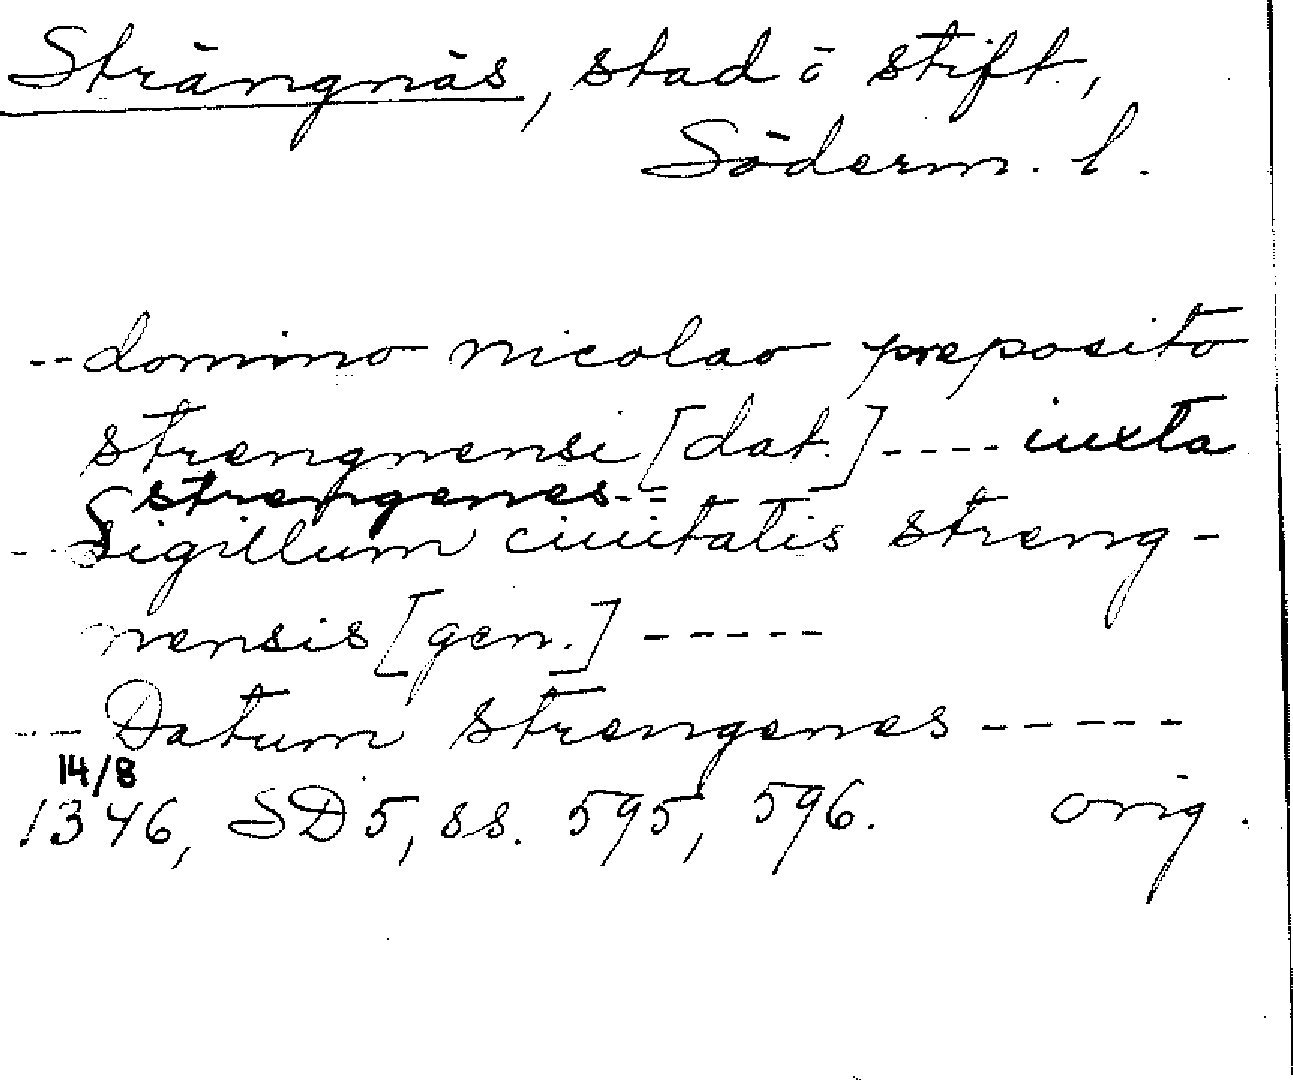 Strängnäs, stad ö stift,
Söderm. l.
-- domino nicolao preposito
strengnensi [dat.] ---- iuxta
strengenes --
-- Sigillum ciuitatis streng-
nensis [gen.] -----
--- Datum strengenes -----
14/8
1346, SD 5, ss. 595, 596. orig.